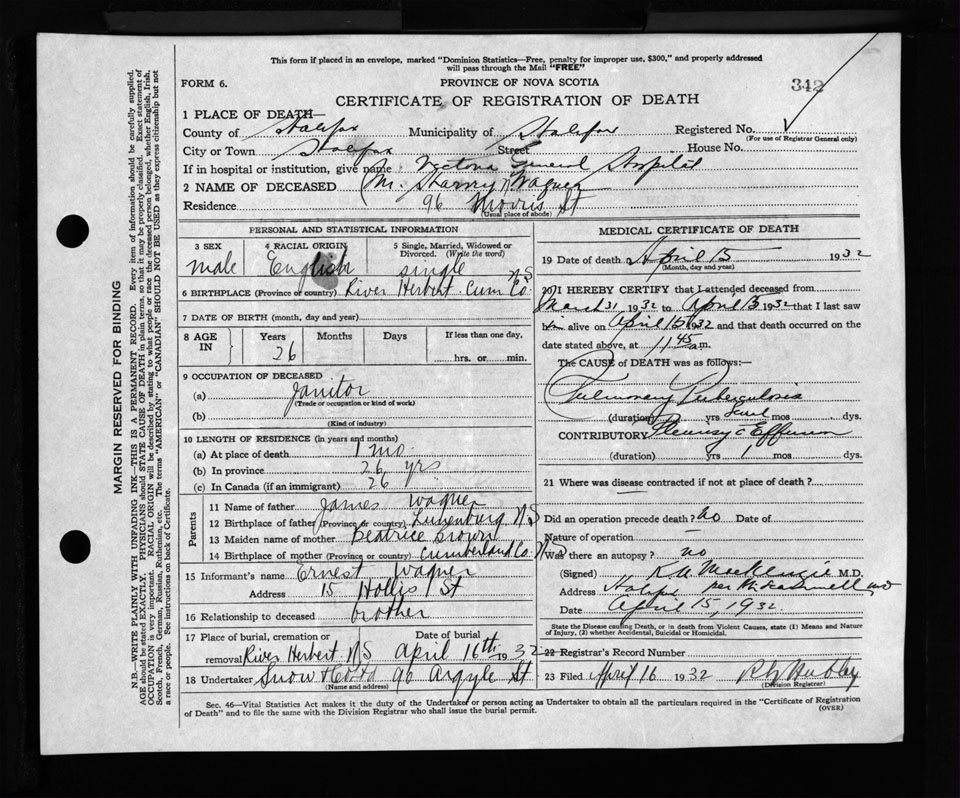 This form if placed in an envelope, marked "Dominion Statistics—Free, penalty for improper use, $300," and properly addressed
will pass through the Mail "FREE"
FORM 6. PROVINCE OF NOVA SCOTIA 342
CERTIFICATE OF REGISTRATION OF DEATH
1 PLACE OF DEATH—
County of Halifax Municipality of Halifax Registered No.
(For use of Registrar General only)
City or Town Halifax Street House No.
If in hospital or institution, give name Victoria General Hospital
2 NAME OF DECEASED Wagner
Residence 96 Morris St
(Usual place of abode)
PERSONAL AND STATISTICAL INFORMATION
3 SEX 4 RACIAL ORIGIN 5 Single, Married, Widowed or Divorced. (Write the word)
male English single
6 BIRTHPLACE (Province or country) River Herbert Cum Co. NS
7 DATE OF BIRTH (month, day and year)
8 AGE IN Years Months Days If less than one day,
26 hrs. or min.
9 OCCUPATION OF DECEASED
(a) Janitor
(Trade or occupation or kind of work)
(b)
(Kind of industry)
10 LENGTH OF RESIDENCE (in years and months)
(a) At place of death 1 mo
(b) In province 26 yrs
(c) In Canada (if an immigrant) 26
Parents
11 Name of father James Wagner
12 Birthplace of father (Province or country) Lunenburg NS
13 Maiden name of mother Beatrice Brown
14 Birthplace of mother (Province or country) Cumberland Co. NS
15 Informant's name Ernest Wagner
Address 15 Hollis St
16 Relationship to deceased brother
17 Place of burial, cremation or removal Date of burial
River Herbert NS April 16th 1932
18 Undertaker Snow 96 Argyle St
(Name and address)
MEDICAL CERTIFICATE OF DEATH
19 Date of death April 15 1932
(Month, day and year)
20 I HEREBY CERTIFY that I attended deceased from
March 31, 1932 to April 15 1932 that I last saw
him alive on April 15 1932 and that death occurred on the
date stated above, at 11 45 am.
The CAUSE of DEATH was as follows:—
Pulmonary Tuberculosis
(duration) yrs mos dys.
CONTRIBUTORY Pleurisy c Effusion
(duration) yrs 1 mos dys.
21 Where was disease contracted if not at place of death?
Did an operation precede death? no Date of
Nature of operation
Was there an autopsy? no
(Signed) MacKenzie M.D.
Address Halifax per
Date April 15, 1932.
State the Disease causing Death, or in death from Violent Causes, state (1) Means and Nature
of Injury, (2) whether Accidental, Suicidal or Homicidal.
22 Registrar's Record Number
23 Filed April 16 1932
(Division Registrar)
Sec. 46—Vital Statistics Act makes it the duty of the Undertaker or person acting as Undertaker to obtain all the particulars required in the "Certificate of Registration
of Death" and to file the same with the Division Registrar who shall issue the burial permit.
(OVER)
MARGIN RESERVED FOR BINDING
N.B.—WRITE PLAINLY WITH UNFADING INK—THIS IS A PERMANENT RECORD. Every item of information should be carefully supplied.
AGE should be stated EXACTLY. PHYSICIANS should STATE CAUSE OF DEATH in plain terms, so that it may be properly classified. Exact statement of
OCCUPATION is very important. RACIAL ORIGIN will be described by stating to what people or race the deceased person belonged, whether English, Irish,
Scotch, French, German, Russian, Ruthenian, etc. The terms "AMERICAN" or "CANADIAN" SHOULD NOT BE USED as they express citizenship but not
a race or people. See instructions on back of Certificate.